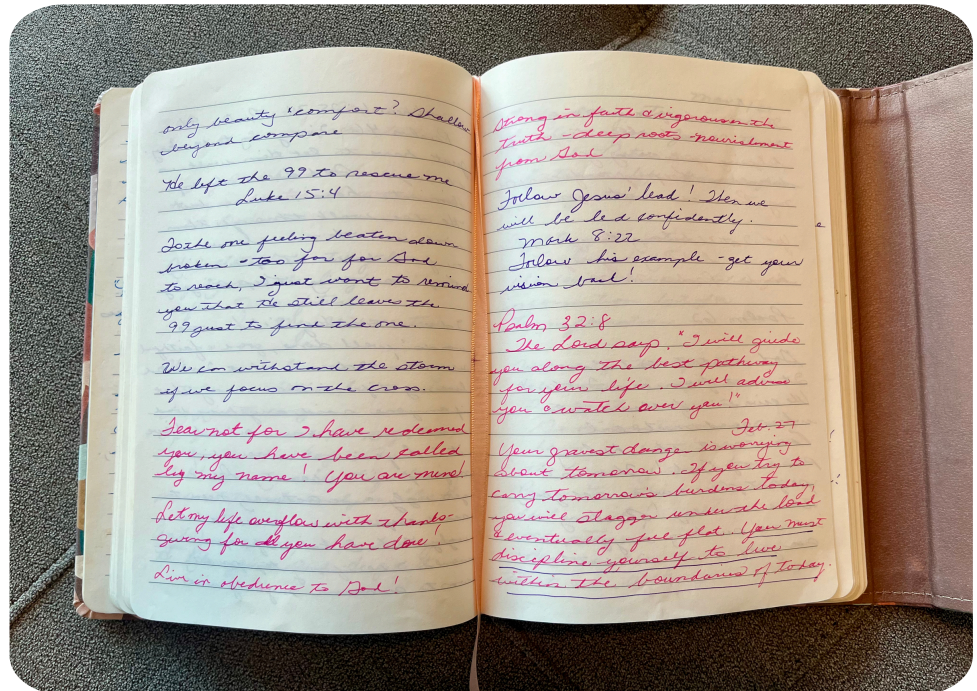 only beauty & comfort? Shallow
beyond compare
He left the 99 to rescue me
Luke 15:4
To the one feeling beaten down
broken - too far for God
to reach, I just want to remind
you that He still leaves the
99 just to find the one.
We can withstand the storm
if we focus on the cross.
Fear not for I have redeemed
you, you have been called
by my name! You are mine!
Let my life overflow with thanks-
giving for all you have done!
Live in obedience to God!
Strong in faith & vigorous in the
truth - deep roots - nourishment
from God
Follow Jesus' lead! Then we
will be led confidently.
Mark 8:22
Follow his example - get your
vision back!
Psalm 32:8
The Lord says, "I will guide
you along the best pathway
for your life. I will advise
you & watch over you!"
Feb. 27
Your gravest danger is worrying
about tomorrow. If you try to
carry tomorrows burdens today,
you will stagger under the load
& eventually fall flat. You must
discipline yourself to live
within the boundaries of today.